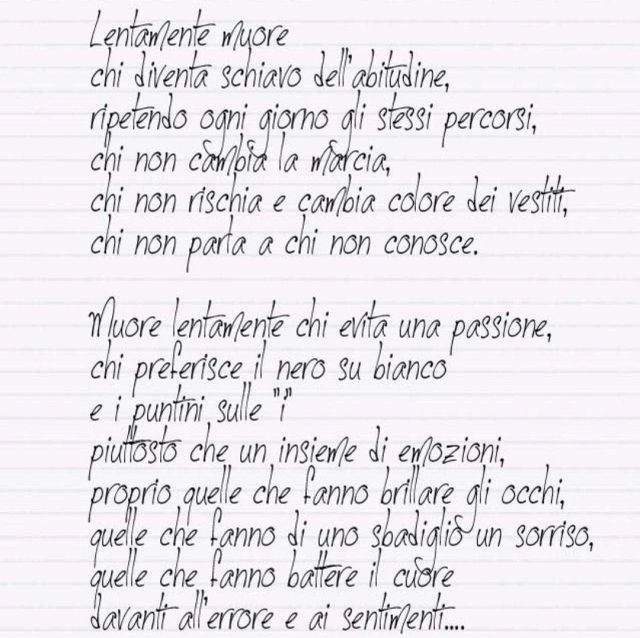 Lentamente muore
chi diventa schiavo dell'abitudine,
ripetendo ogni giorno gli stessi percorsi,
chi non cambia la marcia,
chi non rischia e cambia colore dei vestiti,
chi non parla a chi non conosce.
Muore lentamente chi evita una passione,
chi preferisce il nero su bianco
e i puntini sulle "i"
piuttosto che un insieme di emozioni,
proprio quelle che fanno brillare gli occhi,
quelle che fanno di uno sbadiglio un sorriso,
quelle che fanno battere il cuore
davanti all'errore e ai sentimenti....